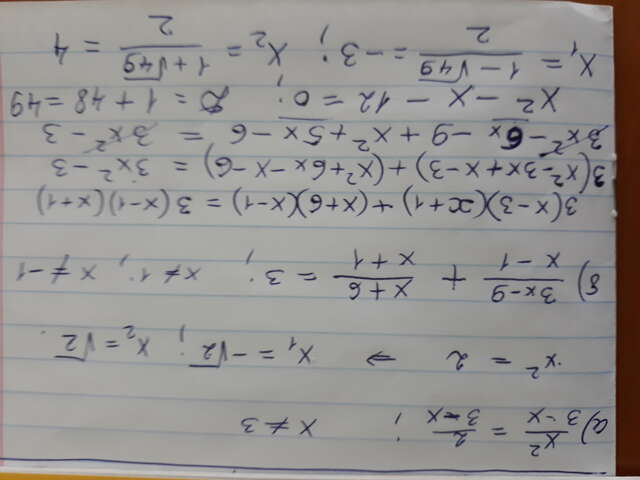 а) x²/(3-x) = 2/(3-x) ; x ≠ 3
x² = 2 ⇒ x₁ = -√2 ; x₂ = √2.
б) (3x-9)/(x-1) + (x+6)/(x+1) = 3 ; x ≠ 1 , x ≠ -1
3(x-3)(x+1) + (x+6)(x-1) = 3(x-1)(x+1)
3(x²-3x+x-3) + (x²+6x-x-6) = 3x²-3
3x²-6x-9+x²+5x-6 = 3x²-3
x²-x-12=0; D=1+48=49
x₁ = (1-√49)/2 = -3 ; x₂ = (1+√49)/2 = 4